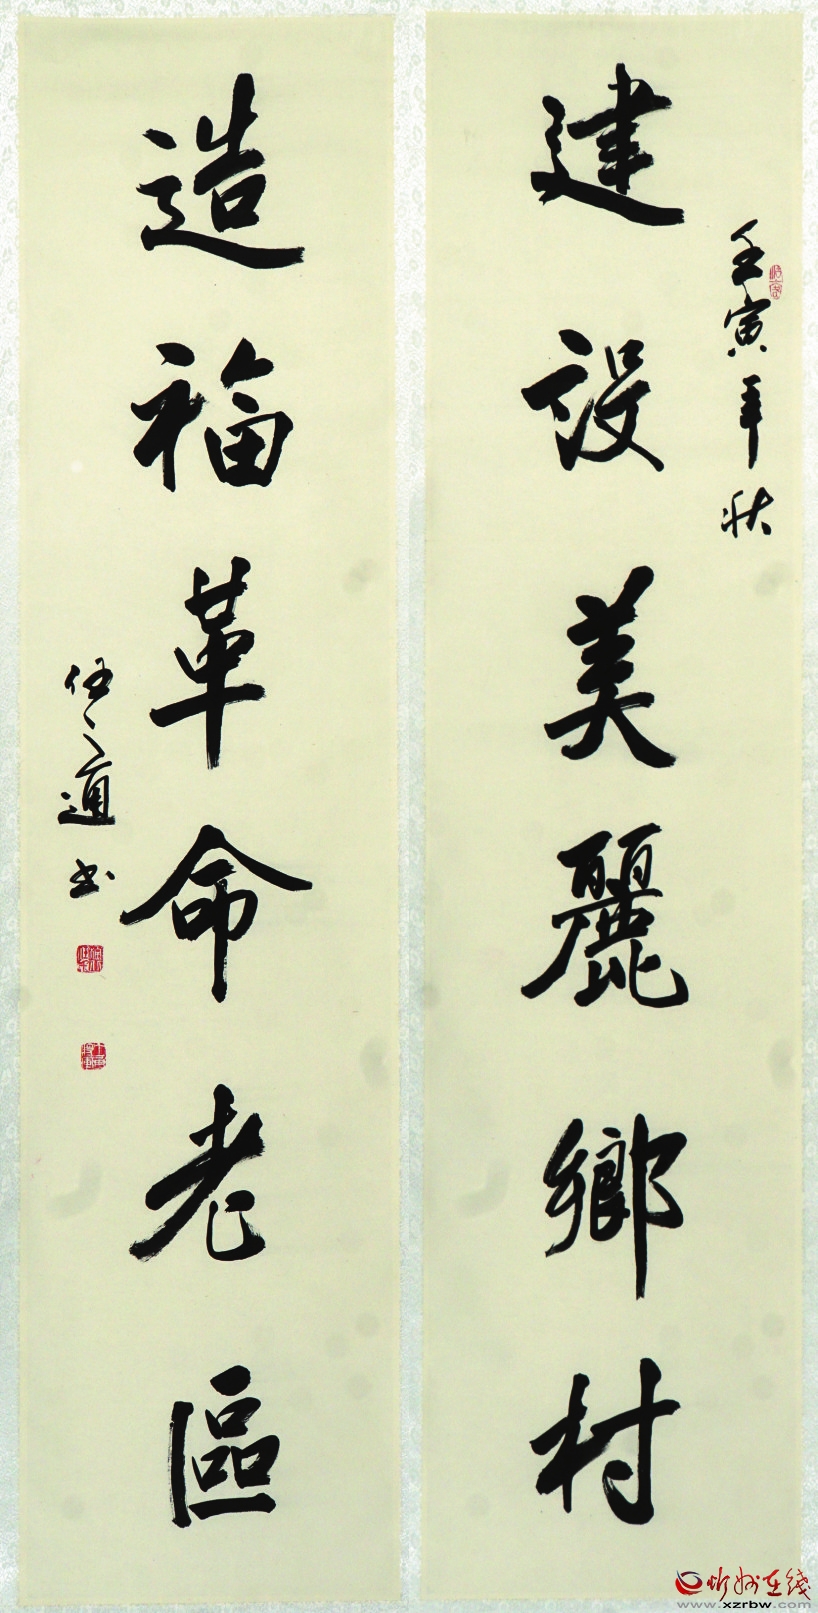 建設美麗鄉村
壬寅年秋
造福革命老區
任之通書
忻州在线
www.xzrbw.com